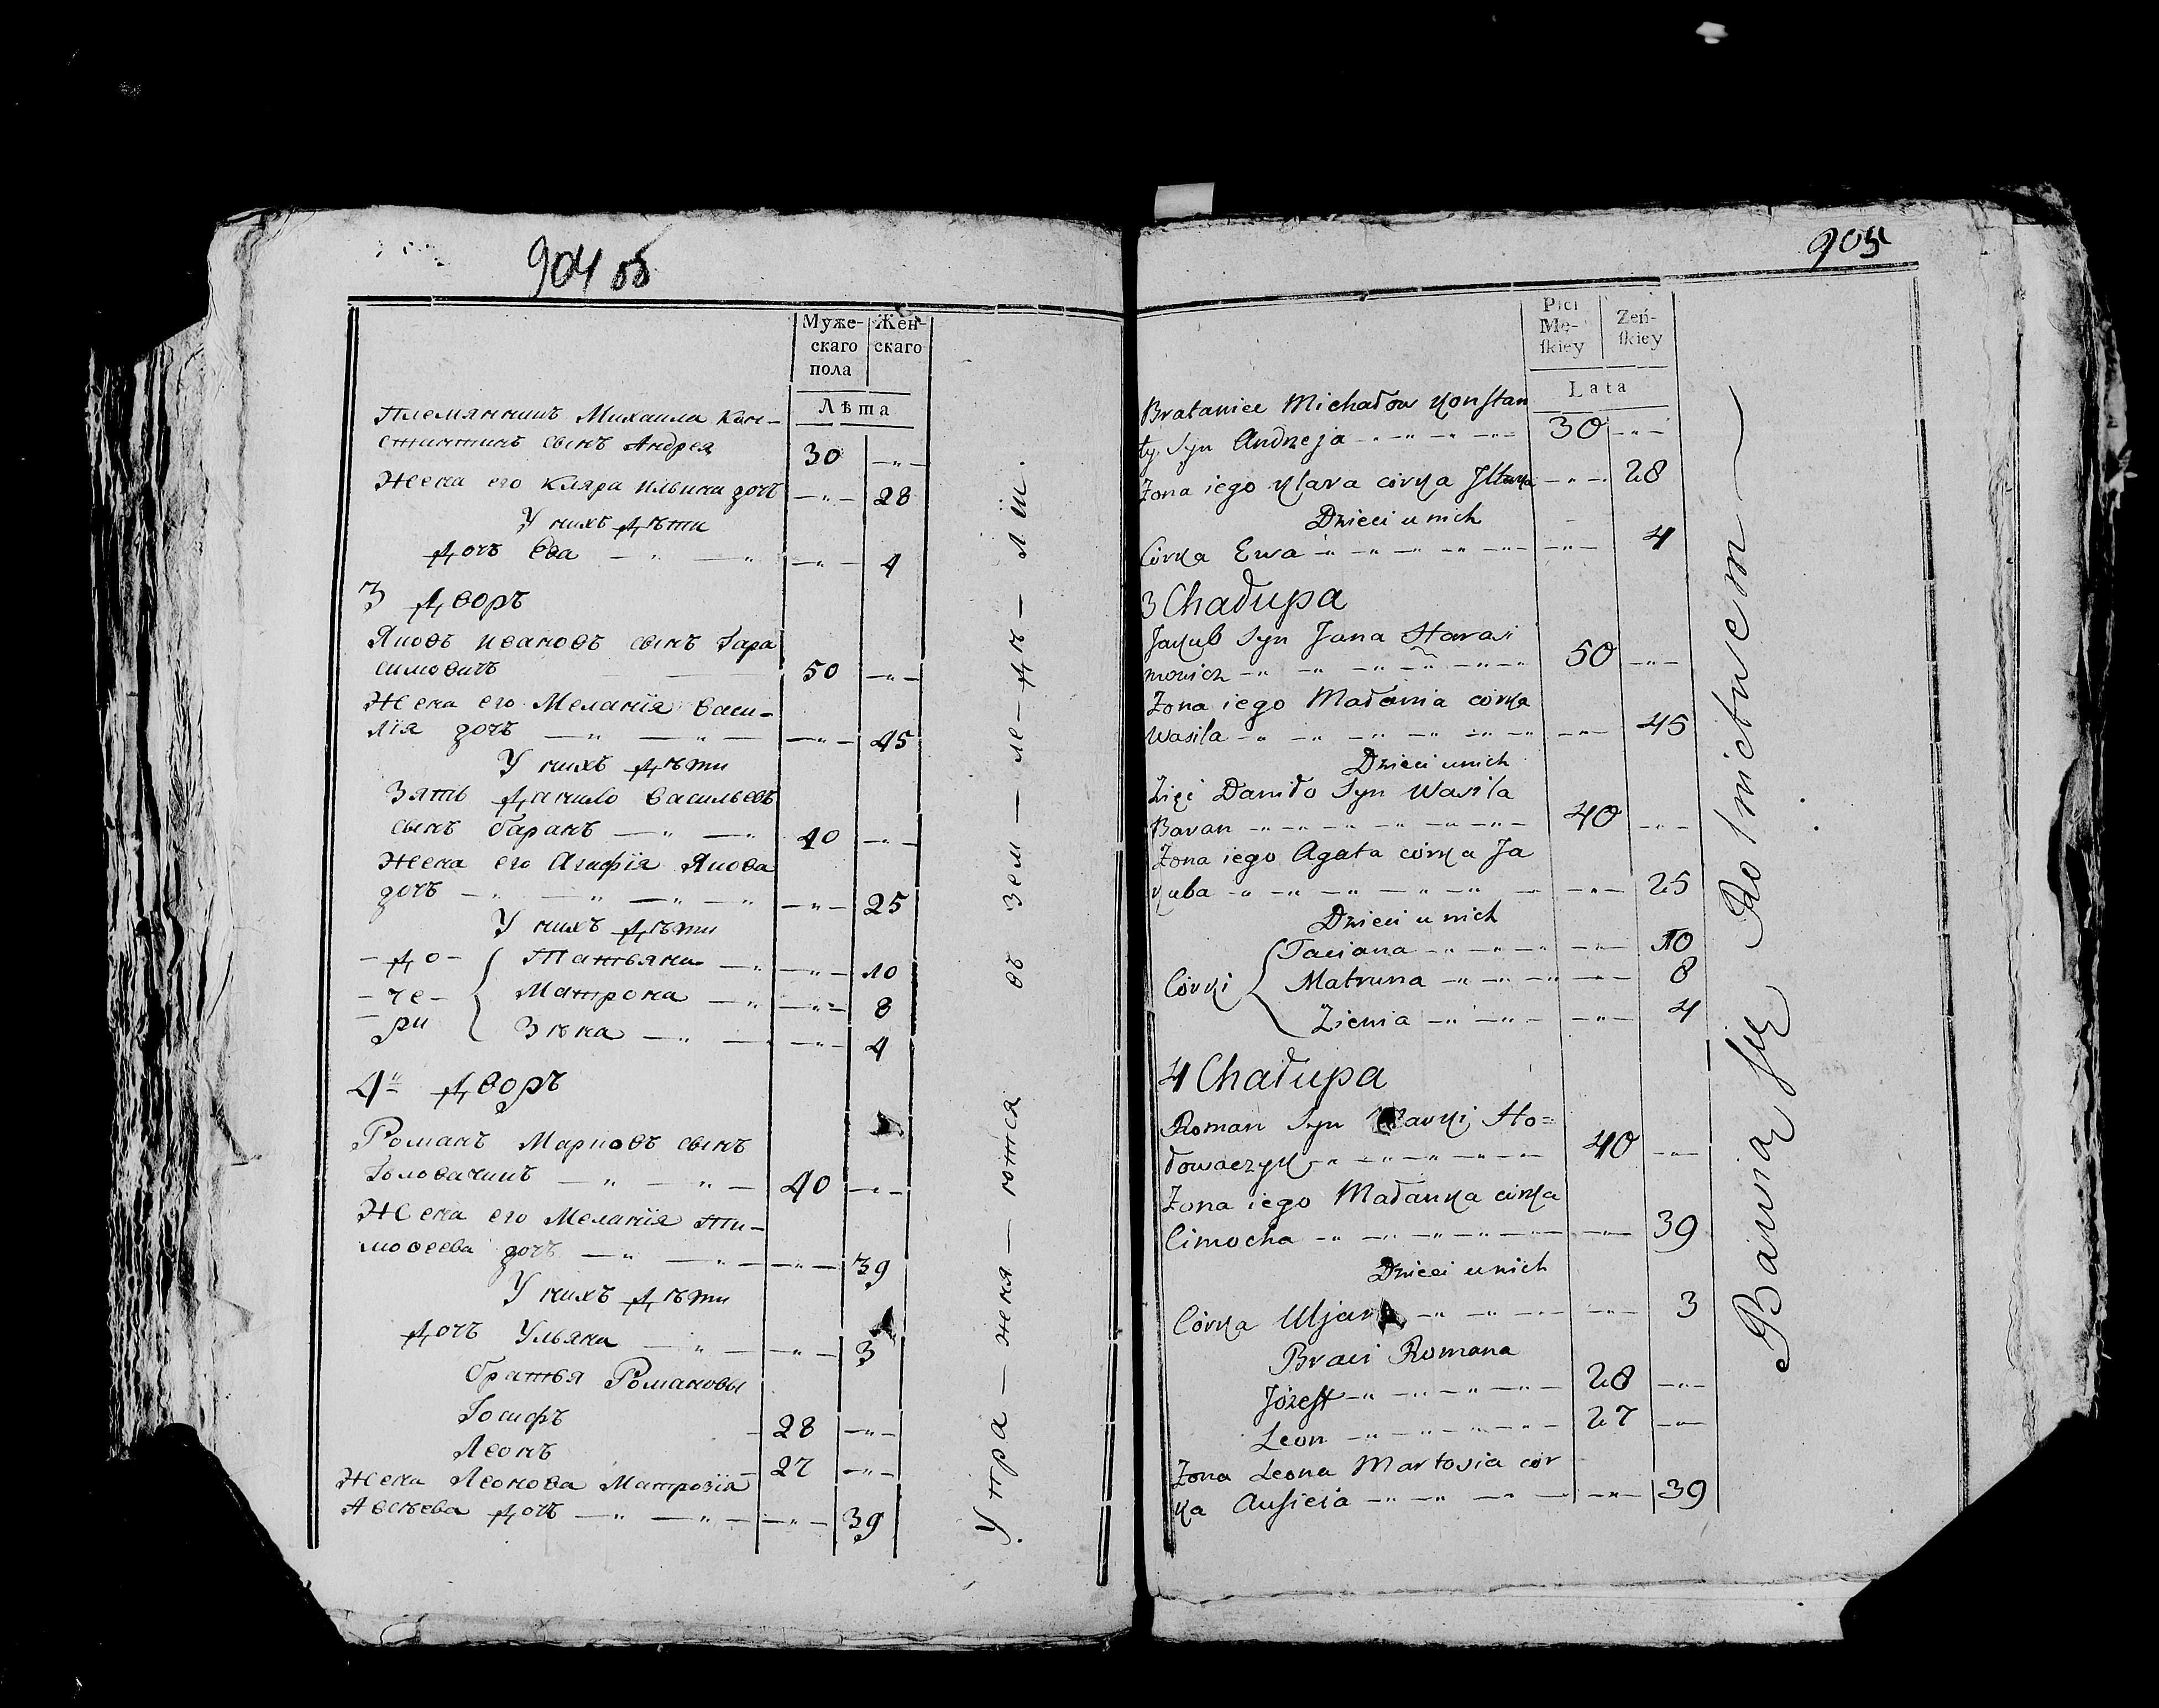 904 об
Муже- Жен-
скаго скаго
пола
Лѣта
Племянникъ Михаила Кон-
стантинъ сынъ Андрея 30 —"—
Жена его Кляра Ильина дочь —"— 28
У нихъ дѣти
Дочь Ева — " — " —"— 4
3 Дворъ
Яковъ Ивановъ сынъ Гара
симовичъ 50 —"—
Жена его Меланія Васи-
лія дочь — " — " — —"— 45
У нихъ дѣти
Зять Данило Васильевъ
сынъ Баранъ — " — " 40 —"—
Жена его Агафія Якова
дочь — " — " — " — " —"— 25
У нихъ дѣти
- До - Татьяна — " —"— 10
- че - Матрона — " —"— 8
ри Зѣна — " — —"— 4
4й Дворъ
Романъ Марковъ сынъ
Головачикъ — " — " — 40 —"—
Жена его Меланія Ти-
мофеева дочь — " — " — —"— 39
У нихъ дѣти
Дочь Ульяна — " — —"— 3
Братья Романовы
Іосифъ 28 —"—
Леонъ 27 —"—
Жена Леонова
Авсѣева дочь — " — " — —"— 39
Упра-жня-ются въ Зем-ле-дѣ-ліи.
905
Płci
Mę- Zeń-
ſkiey ſkiey
Lata
Bratanicc Michałow Konstan
ty Syn Andrzeja 30 —"—
Zona iego Klara córka —"— 28
Dzieci u nich
Córka Ewa —"— 4
3 Chałupa
Jakub Syn Jana Harasi
mowicz 50 —"—
Zona iego Małania córka
Wasila —"— 45
Dzieci u nich
Zięć Daniło Syn Wasila
Baran 40 —"—
Zona iego Agata córka Ja
kuba —"— 25
Dzieci u nich
Taciana —"— 10
Córki Matruna —"— 8
Zienia —"— 4
4 Chałupa
Roman Syn Marki Ho=
łowaczyk 40 —"—
Zona iego Małanka córka
Cimocha —"— 39
Dzieci u nich
Córka Uljana —"— 3
Braci Romana
Józeff 28 —"—
Leon 27 —"—
Zona Leona cór
ka Ausieia —"— 39
Bawią się Rolnictwem